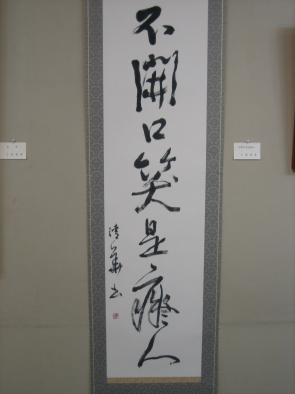 不開口笑是癡人
清華書